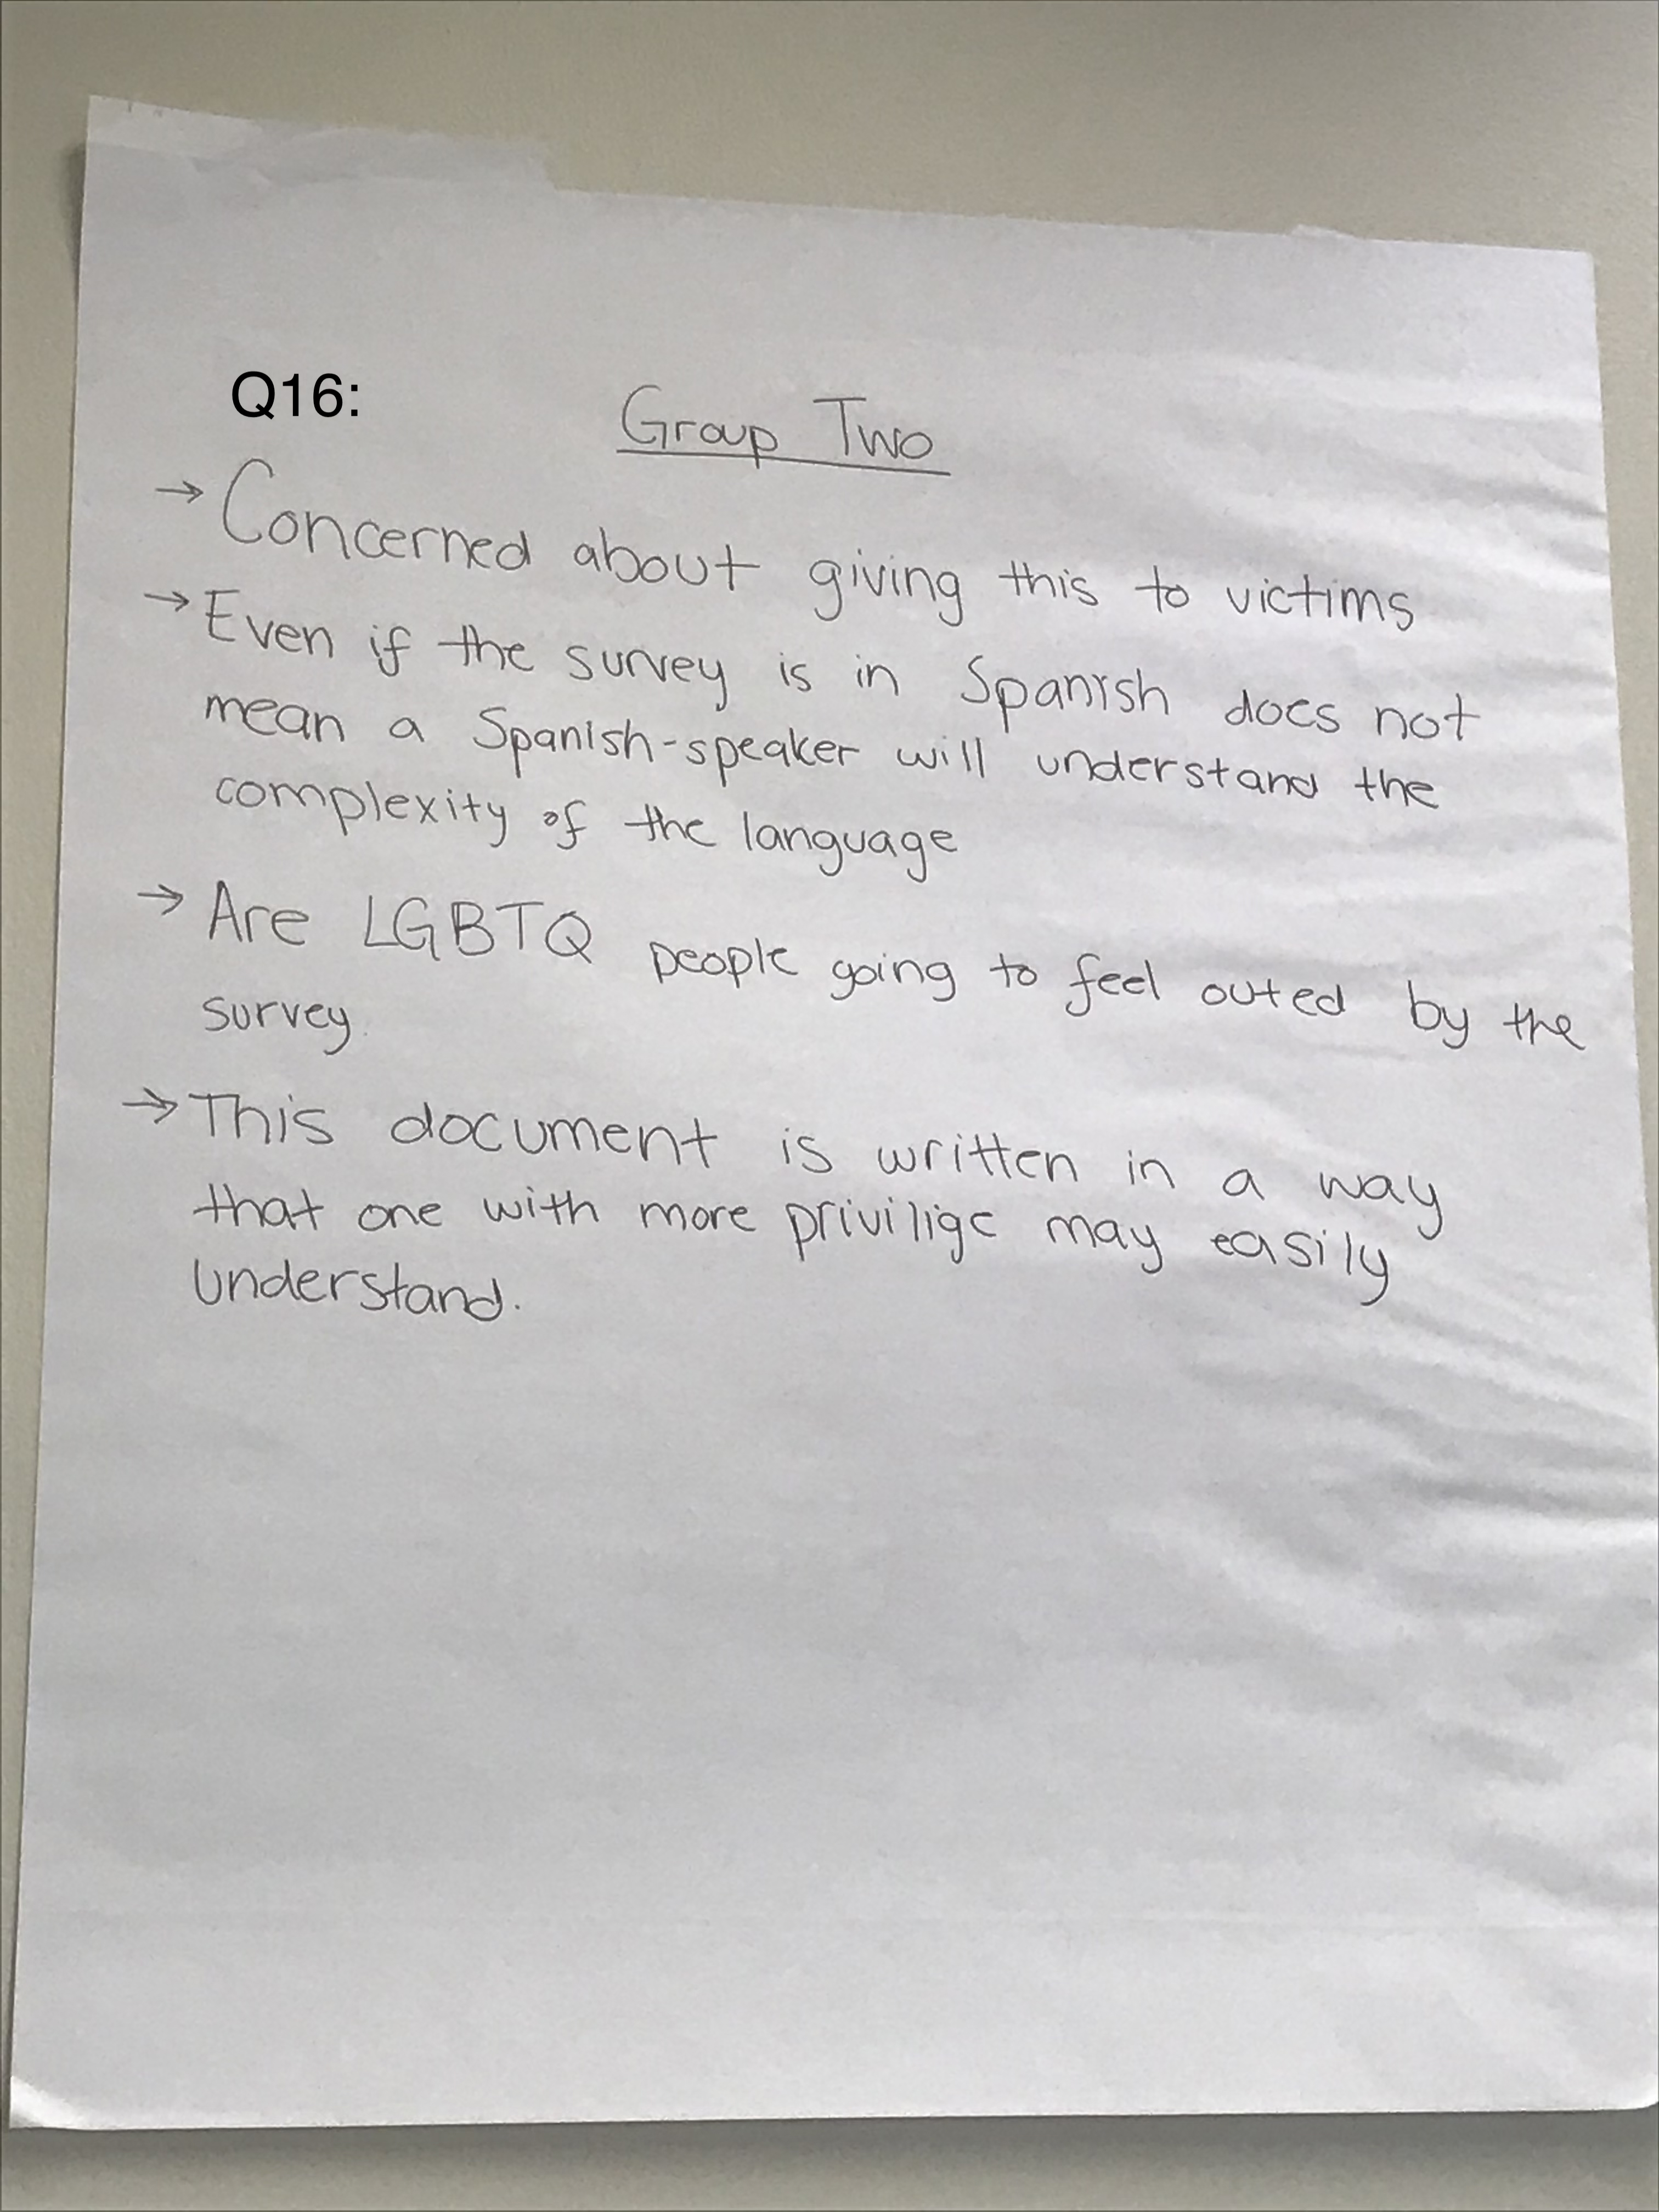 Q16:
Group Two
→ Concerned about giving this to victims
→ Even if the survey is in Spanish does not
mean a Spanish-speaker will understand the
complexity of the language
→ Are LGBTQ people going to feel outed by the
survey.
→ This document is written in a way
that one with more privilige may easily
understand.